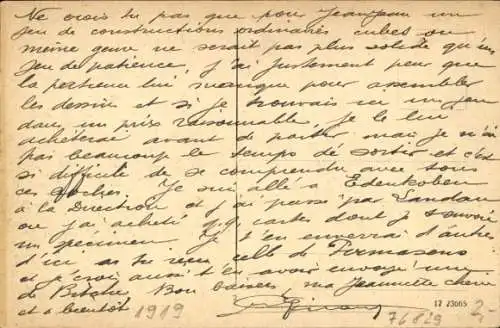 Ne crois tu pas que pour Jeanjean un
jeu de constructions ordinaires cubes ou
même genre ne serait pas plus solide qu'un
jeu de patience, j'ai justement peur que
la patience lui manque pour assembler
les dessins et si je trouvais ici un jeu
dans un prix raisonnable, je le lui
achèterai avant de partir mais je n'ai
pas beaucoup le temps de sortir et c'est
si difficile de se comprendre avec tous
ces boches. Je suis allé à Edenkoben
à la Direction et j'ai passé par Landau
où j'ai acheté q.q. cartes dont je t'envoie
un spécimen. Je t'en enverrai d'autres
d'ici as tu reçu celle de Pirmasens
et je crois aussi t'en avoir envoyé une
de Bitche. Bons baisers ma Jeannette chérie
et à bientôt
1919
76829
17 23065
2,-